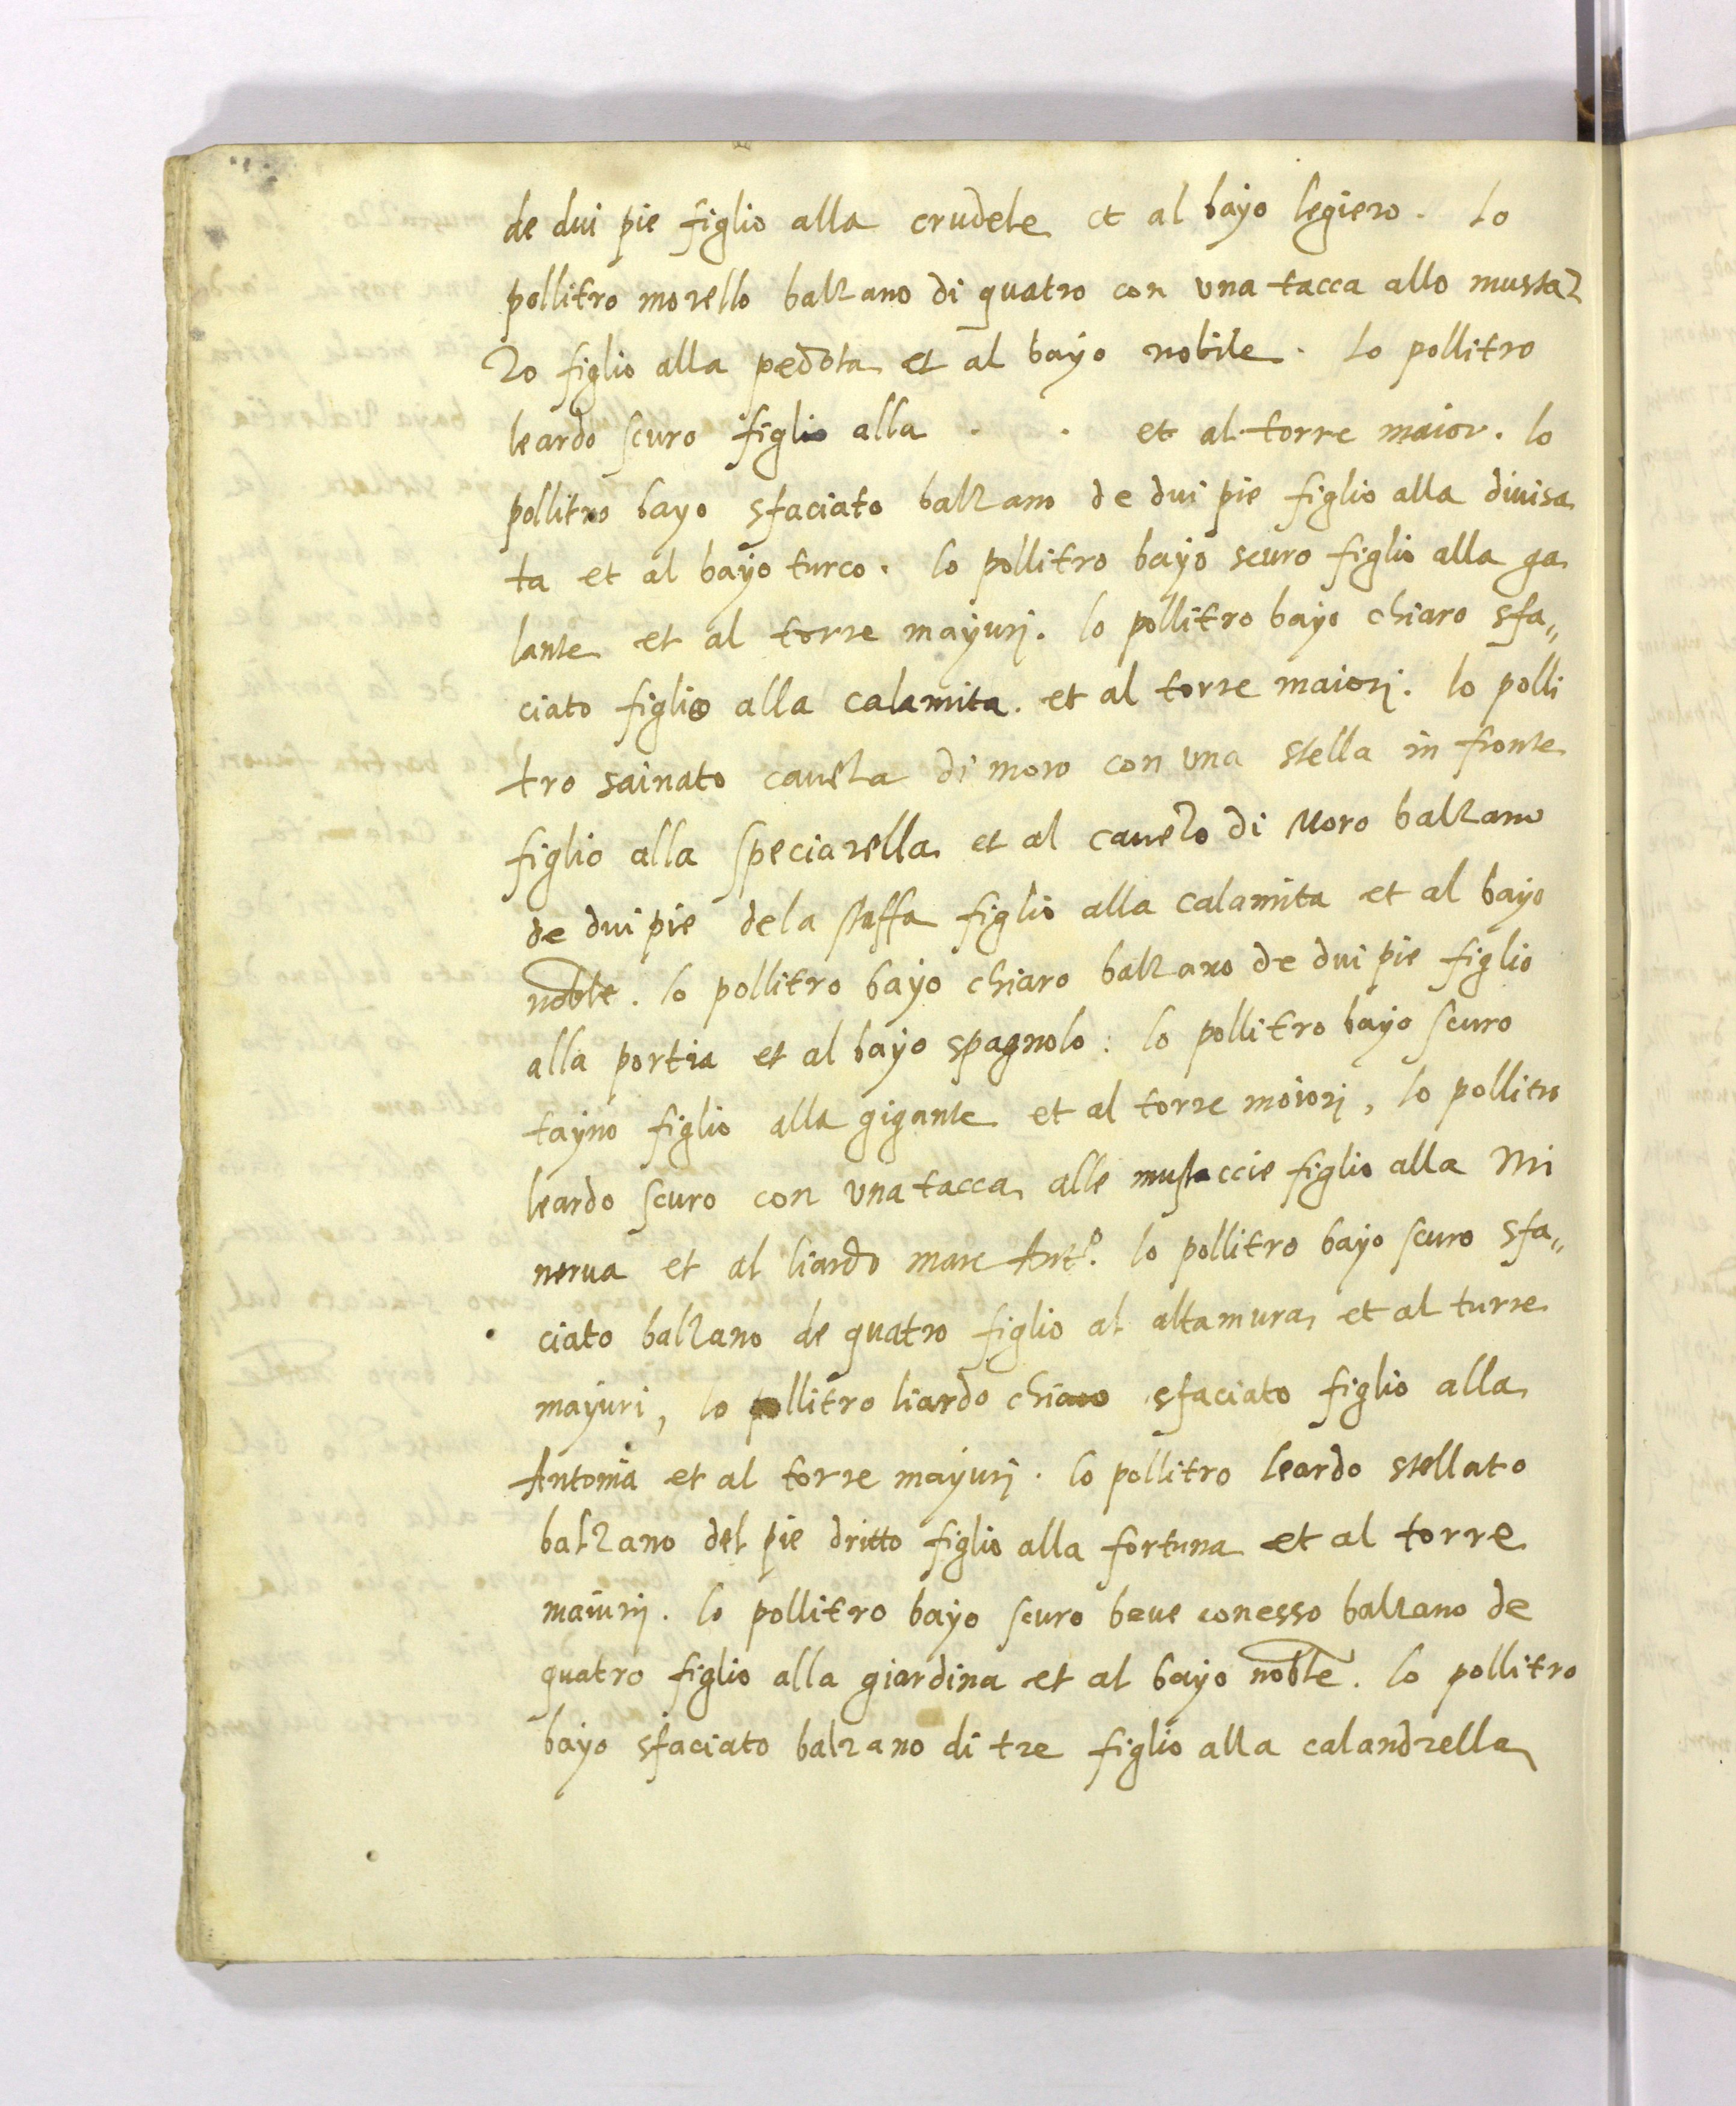 de dui pie figlio alla crudele et al bayo legiero. lo
pollitro morello balzano di quatro con una tacca allo mustaz
zo figlio alla pedota et al bayo nobile. lo pollitro
leardo scuro figlio alla . . et al torre maior. lo
pollitro bayo sfaciato balzano de dui pie figlio alla diuisa
ta et al bayo turco. lo pollitro bayo scuro figlio alla ga
lante et al torre mayurj. lo pollitro bayo chiaro sfa„
ciato figlio alla calamita. et al torre maiorj. lo polli
tro sainato caueza di moro con una stella in fronte
figlio alla speciarella et al cauezo di Moro balzano
de dui pie de la staffa figlio alla calamita et al bayo
noble. lo pollitro bayo chiaro balzano de dui pie figlio
alla portia et al bayo spagnolo: lo pollitro bayo scuro
tayno figlio alla gigante et al torre moiorj, lo pollitro
leardo scuro con una tacca alle mustaccie figlio alla Mi
nerua et al liardo marc Antº. lo pollitro bayo scuro sfa„
ciato balzano de quatro figlio al altamura et al turre
mayuri, lo pollitro liardo chiaro sfaciato figlio alla
Antonia et al torre mayurj. lo pollitro leardo stellato
balzano del pie dritto figlio alla fortuna et al torre
maiurij. lo pollitro bayo scuro beue conesso balzano de
quatro figlio alla giardina et al bayo noble. lo pollitro
bayo sfaciato balzano di tre figlio alla calandrella